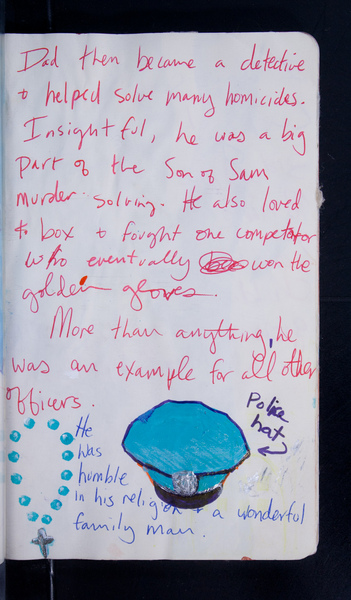 Dad then became a detective
& helped solve many homicides.
Insightful, he was a big
part of the Son of Sam
murder solving. He also loved
to box & fought one competator
who eventually won the
golden gloves.
More than anything, he
was an example for all other
officers.
Police
hat
He
was
humble
in his religion + a wonderful
family man.